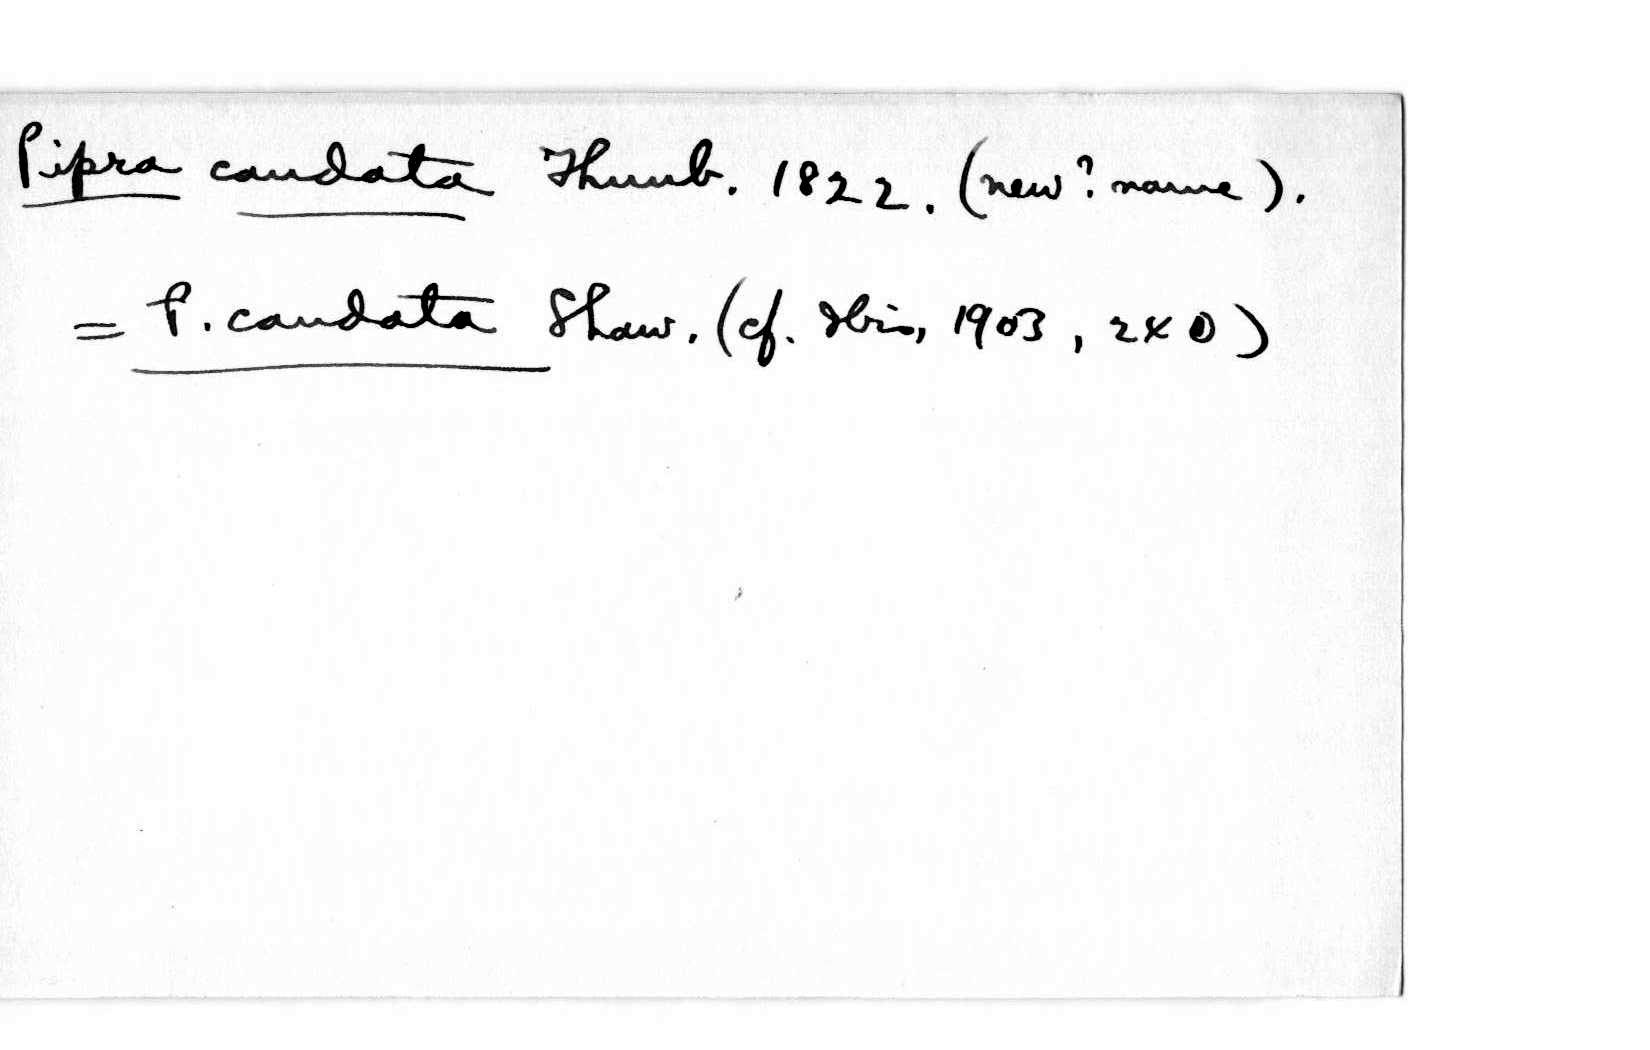 Pipra caudata Thunb. 1822. (new? name).
= P. caudata Shaw. (cf. Ibis, 1903,